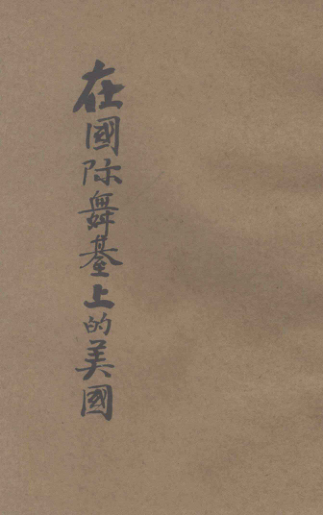 在國际舞臺上的美國